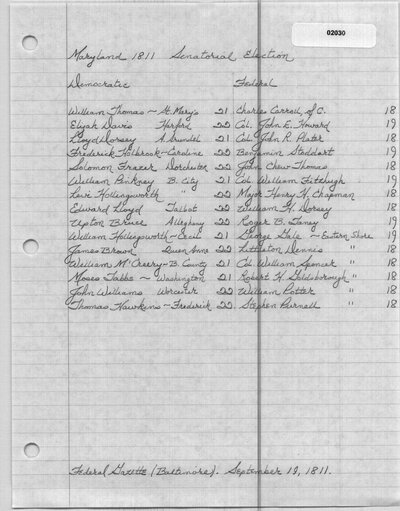 02030
Maryland 1811 Senatorial Election
Democratic Federal
William Thomas ~ St. Mary's 21 Charles Carroll, of C. 18
Elijah Davis Harford 22 Col. John E. Howard 19
Lloyd Dorsey A. Arundel 21 Col. John R. Plater 18
Frederick Holbrook ~ Caroline 22 Benjamin Stoddart 19
Solomon Frazer Dorchester 22 John Chew Thomas 18
William Pinkney B. City 21 Col. William Fitzhugh 19
Levi Hollingsworth " " 22 Major Henry H. Chapman 18
Edward Lloyd Talbot 22 William H. Dorsey 18
Upton Bruce Alleghany 22 Roger B. Taney 19
William Hollingsworth ~ Cecil 21 George Gale ~ Eastern Shore 19
James Brown Queen Anne 22 Littleton Dennis " 18
William McCreery ~ B. County 21 Col. William Spencer " 18
Moses Tabbs ~ Washington 21 Robert H. Goldsborough " 18
John Williams Worcester 22 William Potter " 18
Thomas Hawkins ~ Frederick 22 Stephen Purnell " 18
Federal Gazette (Baltimore). September 19, 1811.